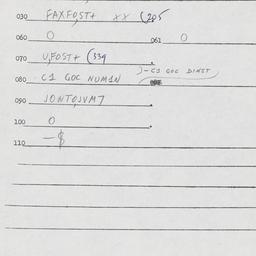 030 FAXFOST+ XX (205
060 0 061 0
070 U,FOST+ (339
080 C1 GOC NUMIN )-C1 GOC DIMST
090 JONTOJVM7
100 0
110 -$